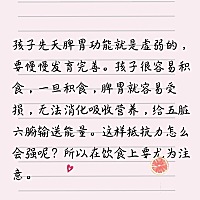 孩子先天脾胃功能就是虚弱的，
要慢慢发育完善。孩子很容易积
食，一旦积食，脾胃就容易受
损，无法消化吸收营养，给五脏
六腑输送能量。这样抵抗力怎么
会强呢？所以在饮食上要尤为注
意。